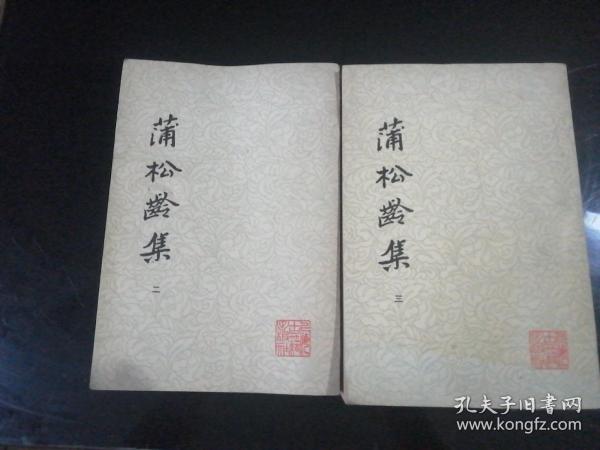 蒲松齡集
二
蒲松齡集
三
孔夫子旧書网
www.kongfz.com